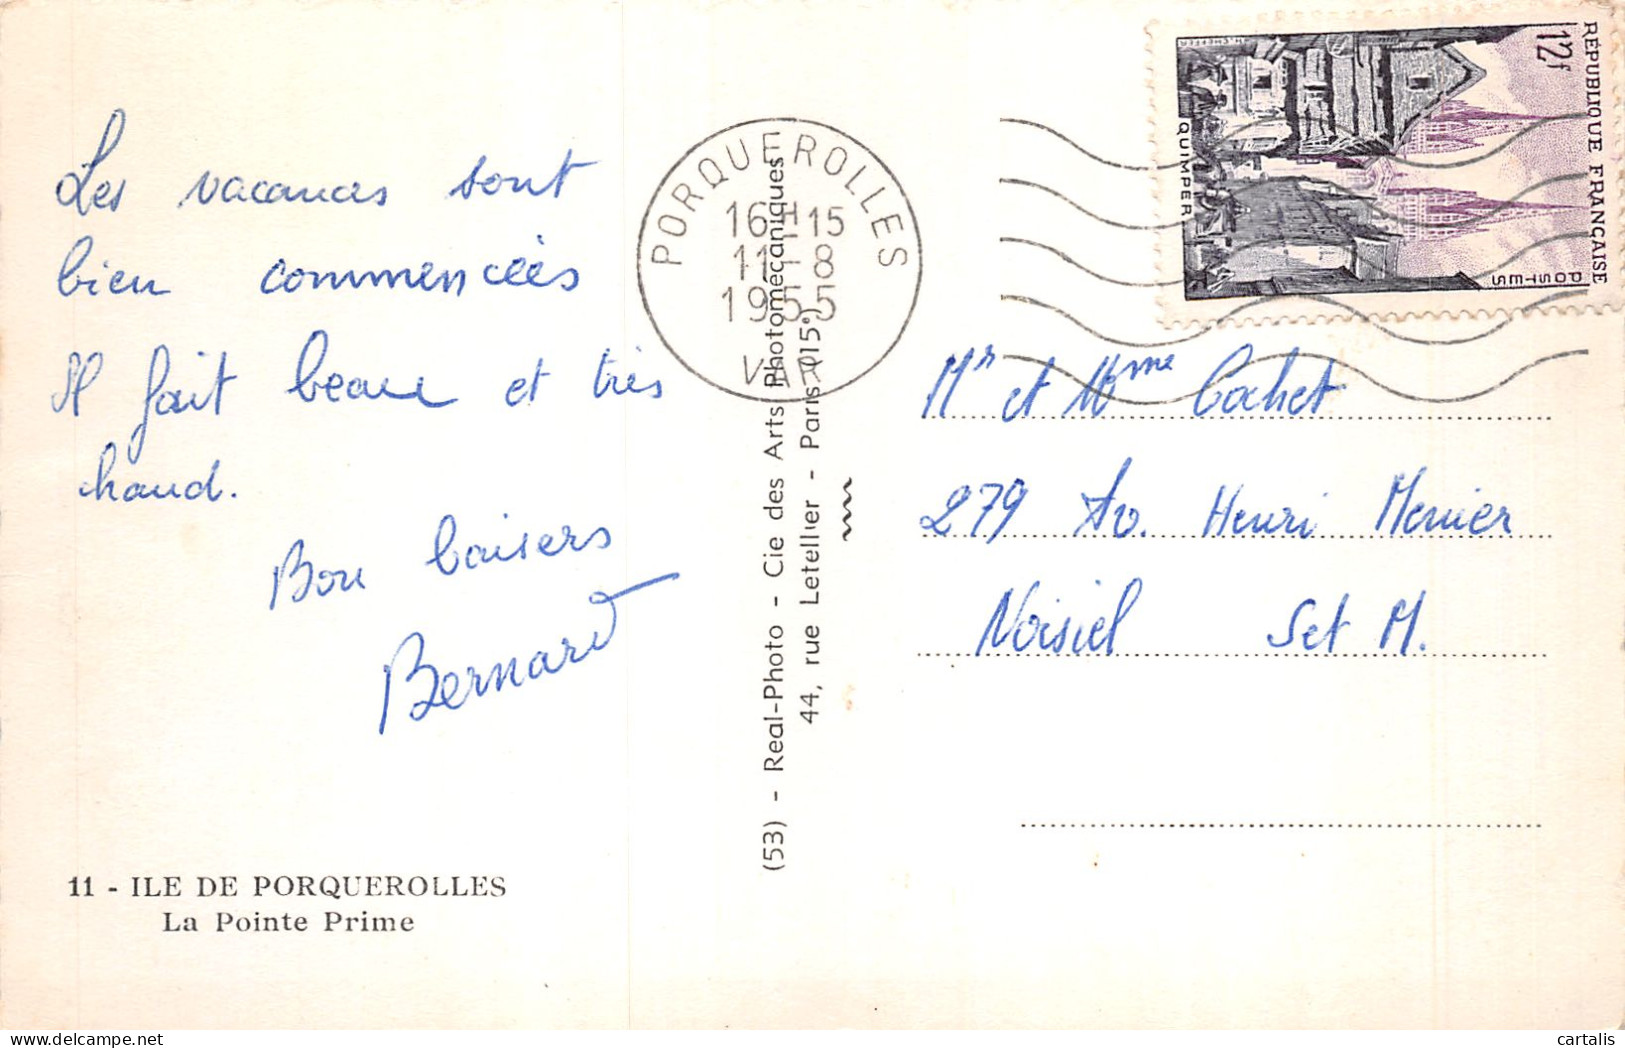 Les vacances sont
bien commencées
Il fait beau et très
chaud.
Bon baisers
Bernard
11 - ILE DE PORQUEROLLES
La Pointe Prime
(53) - Real-Photo - Cie des Arts Photomécaniques
44, rue Letellier - Paris (15°)
PORQUEROLLES
16H15
11-8
1955
VAR
RÉPUBLIQUE FRANÇAISE
12F
POSTES
QUIMPER
H. CHEFFER
Mr et Mme Cochet
279 Av. Henri Menier
Noisiel Set M.
cartalis